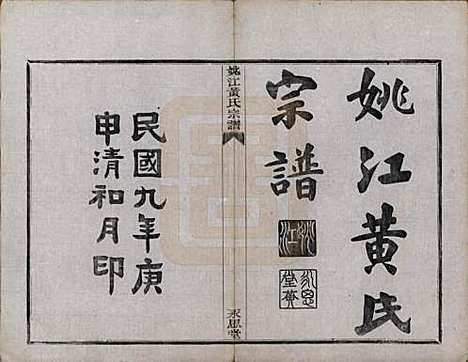 姚江黃氏
宗譜
姚江
永思堂黃
姚江黃氏宗譜
永思堂
民國九年庚
申清和月印